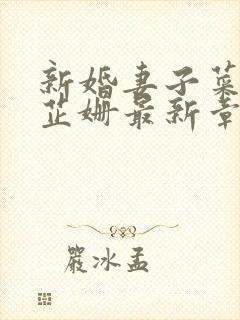 新婚妻子菜
芷姗最新章
嚴冰孟